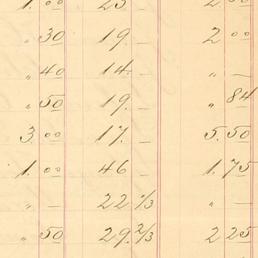 1.00 25 2 00
" 30 19. — 2 00
" 40 14. — " —
" 50 19. — " 84
3.00 17. — 5.50
1.00 46 — 1.75
" — 22 1/3 " —
" 50 29. 2/3 2 25